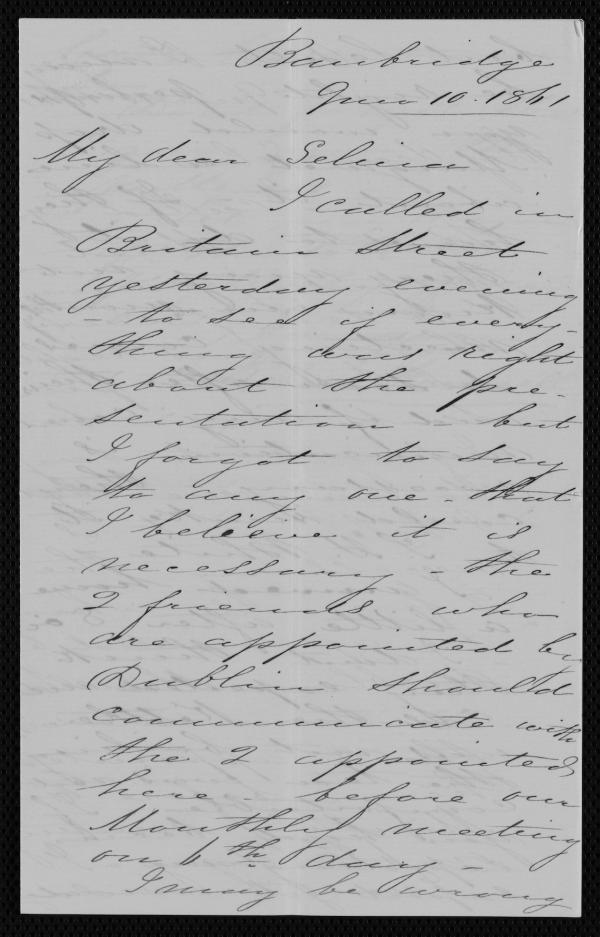 Banbridge
10. 1861
My dear Selina
I called in
Britain Street
yesterday evening
- to see if every-
thing was right
about the pre-
sentation - but
I forgot to say
to any one - that
I believe it is
necessary - the
2 friends who
are appointed by
Dublin should
communicate with
the 2 appointed
here - before our
Monthly meeting
on 6th day -
I may be wrong